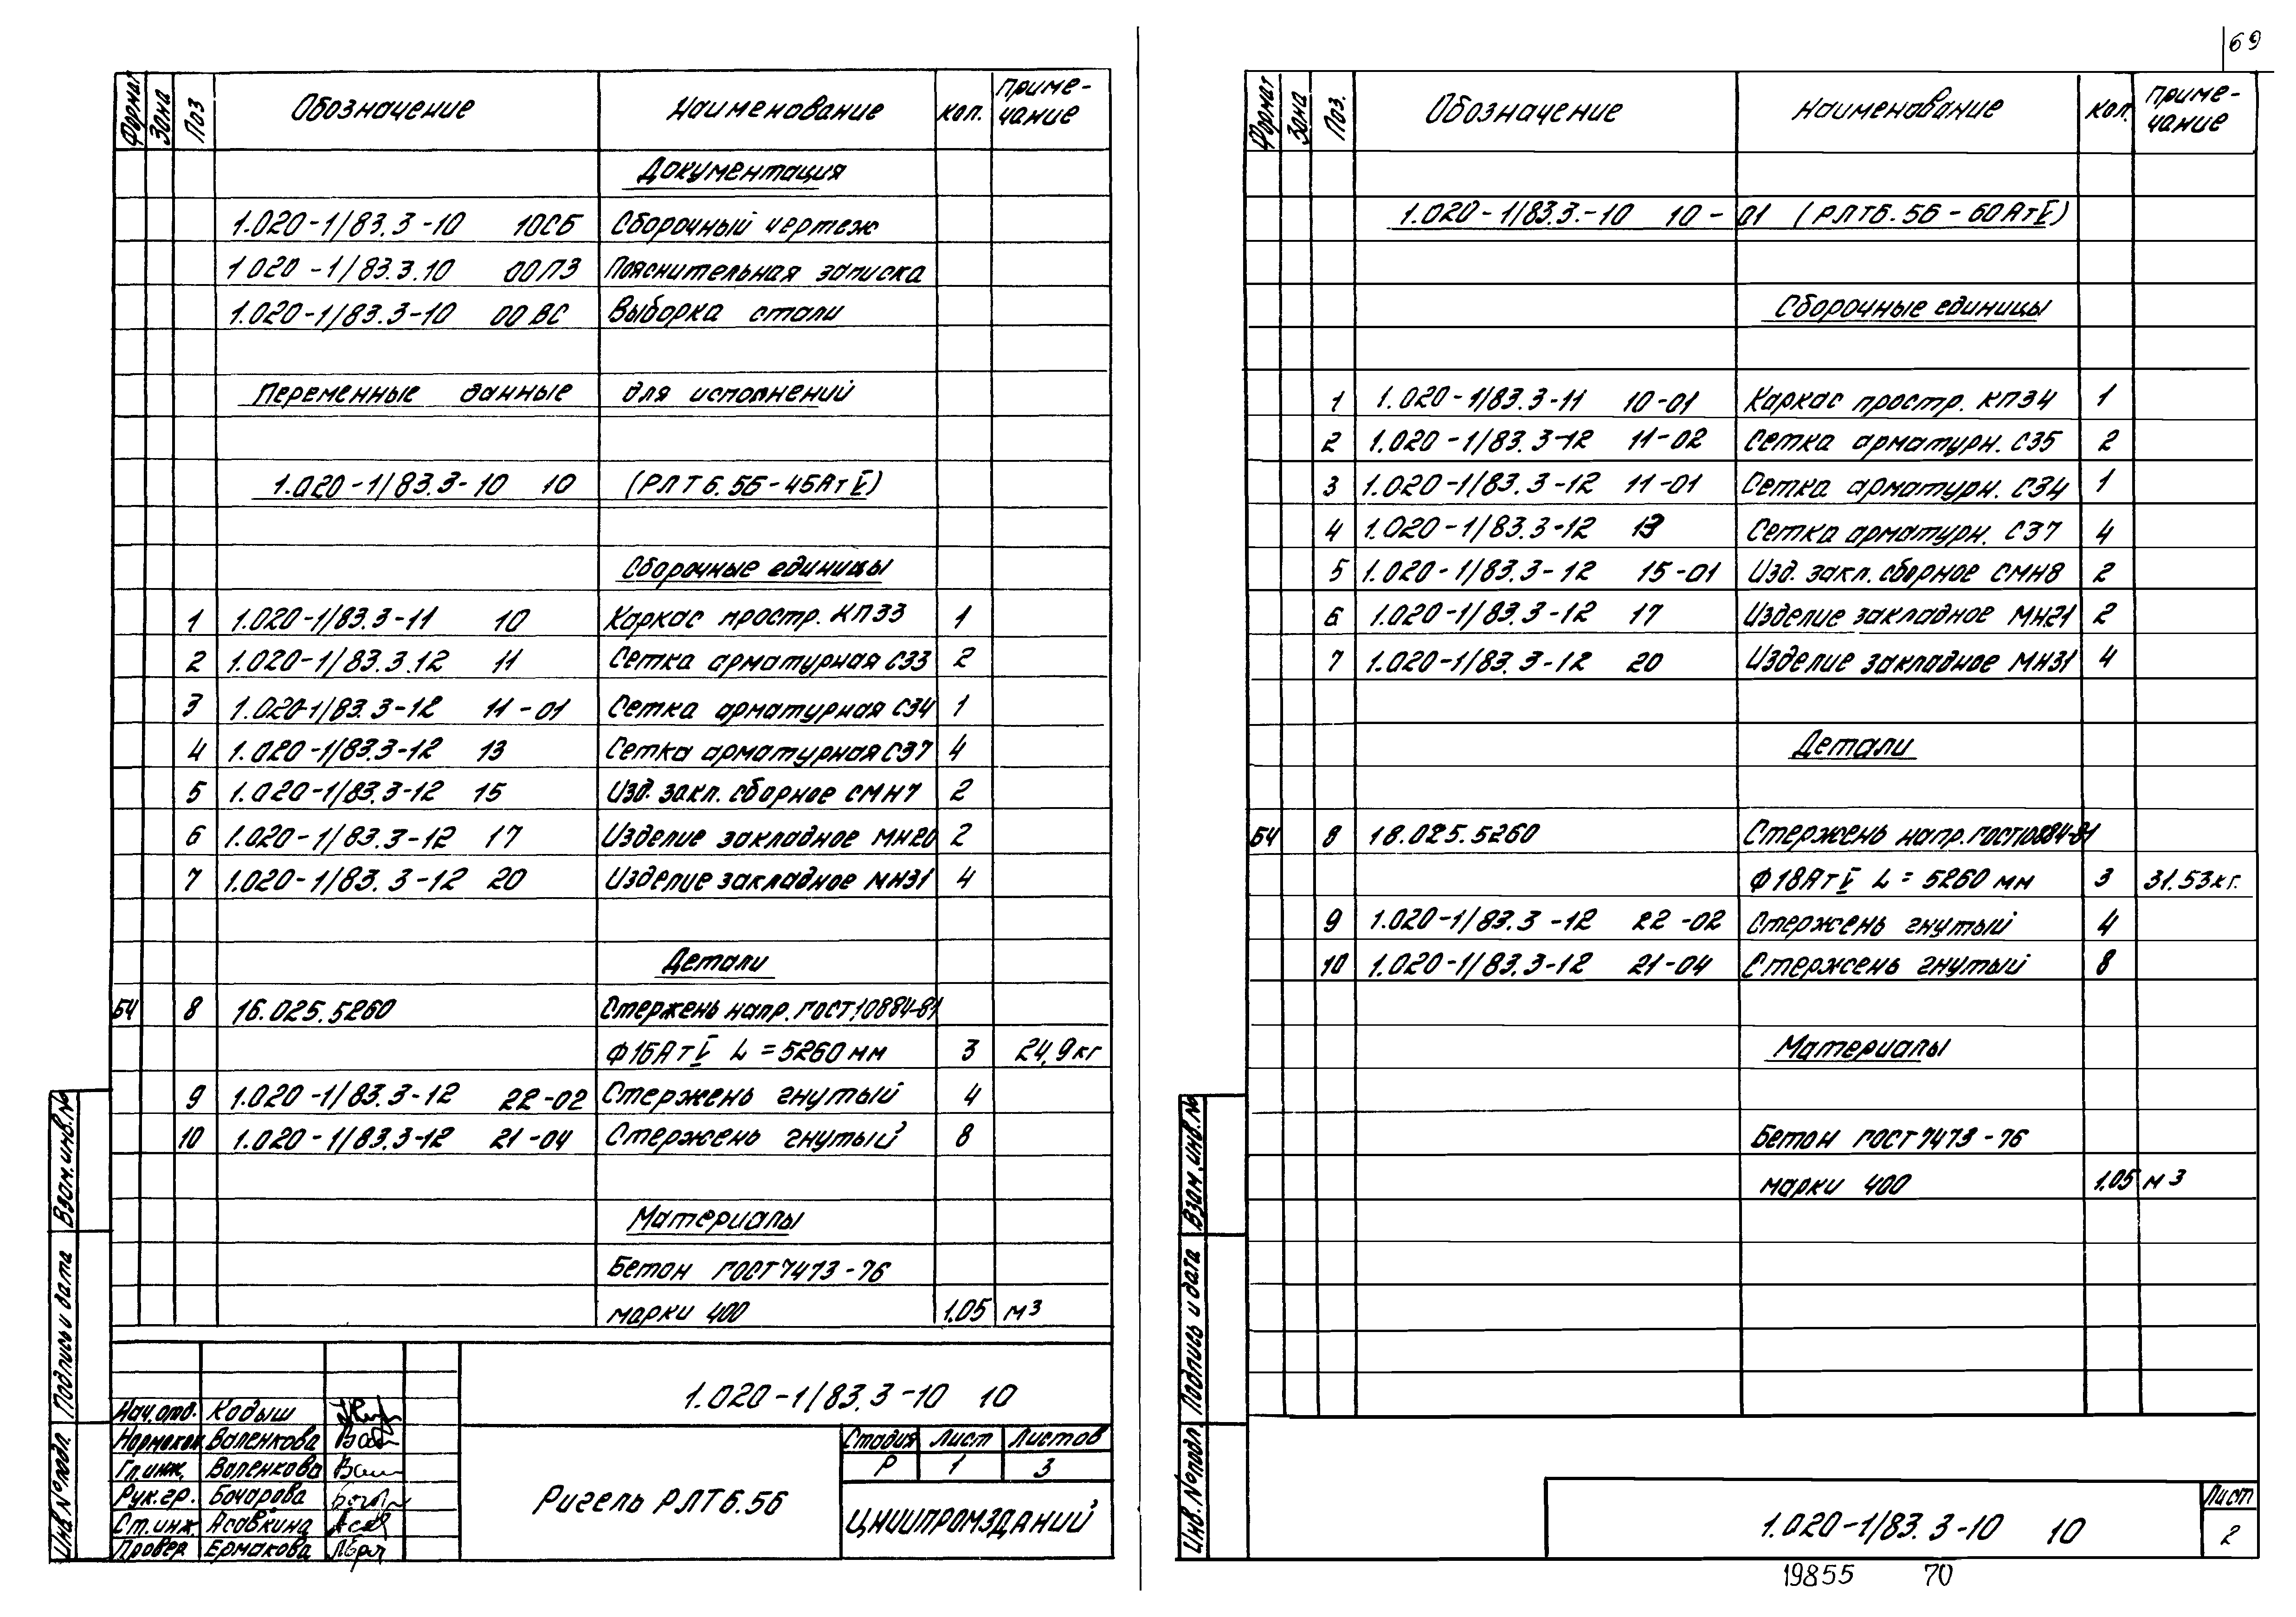 69
Формат Зона Поз Обозначение Наименование Кол. Приме-
чание
Документация
1.020-1/83.3-10 10СБ Сборочный чертеж
1.020-1/83.3.10 00ПЗ Пояснительная записка
1.020-1/83.3-10 00ВС Выборка стали
Переменные данные для исполнений
1.020-1/83.3-10 10 (РЛТ6.56-45АтV)
Сборочные единицы
1 1.020-1/83.3-11 10 Каркас простр. КП33 1
2 1.020-1/83.3.12 11 Сетка арматурная С33 2
3 1.020-1/83.3-12 11-01 Сетка арматурная С34 1
4 1.020-1/83.3-12 13 Сетка арматурная С37 4
5 1.020-1/83.3-12 15 Изд. закл. сборное СМН7 2
6 1.020-1/83.3-12 17 Изделие закладное МН20 2
7 1.020-1/83.3-12 20 Изделие закладное МН31 4
Детали
БЧ 8 16.025.5260 Стержень напр. ГОСТ10884-81
Ф16АтV L=5260мм 3 24,9кг
9 1.020-1/83.3-12 22-02 Стержень гнутый 4
10 1.020-1/83.3-12 21-04 Стержень гнутый 8
Материалы
Бетон ГОСТ 7473-76
марки 400 1.05 м3
Взам. инв. №
Подпись и дата
Инв. № подл.
1.020-1/83.3-10 10
Нач. отд. Кодыш
Нормокон Валенкова
Гл. инж. Валенкова
Рук. гр. Бочарова
Ст. инж Асавкина
Провер Ермакова
Ригель РЛТ6.56
Стадия Лист Листов
Р 1 3
ЦНИИПРОМЗДАНИЙ
Формат Зона Поз. Обозначение Наименование Кол. Приме-
чание
1.020-1/83.3.-10 10-01 (РЛТ6.56-60АтV)
Сборочные единицы
1 1.020-1/83.3-11 10-01 Каркас простр. КП34 1
2 1.020-1/83.3-12 11-02 Сетка арматурн. С35 2
3 1.020-1/83.3-12 11-01 Сетка арматурн. С34 1
4 1.020-1/83.3-12 13 Сетка арматурн. С37 4
5 1.020-1/83.3-12 15-01 Изд. закл. сборное СМН8 2
6 1.020-1/83.3-12 17 Изделие закладное МН21 2
7 1.020-1/83.3-12 20 Изделие закладное МН31 4
Детали
БЧ 8 18.025.5260 Стержень напр. ГОСТ10884-81
Ф18АтV L=5260мм 3 31.53кг.
9 1.020-1/83.3-12 22-02 Стержень гнутый 4
10 1.020-1/83.3-12 21-04 Стержень гнутый 8
Материалы
Бетон ГОСТ7473-76
марки 400 1.05 м3
Взам. инв. №
Подпись и дата
Инв. № подл.
1.020-1/83.3-10 10
Лист
2
19855 70